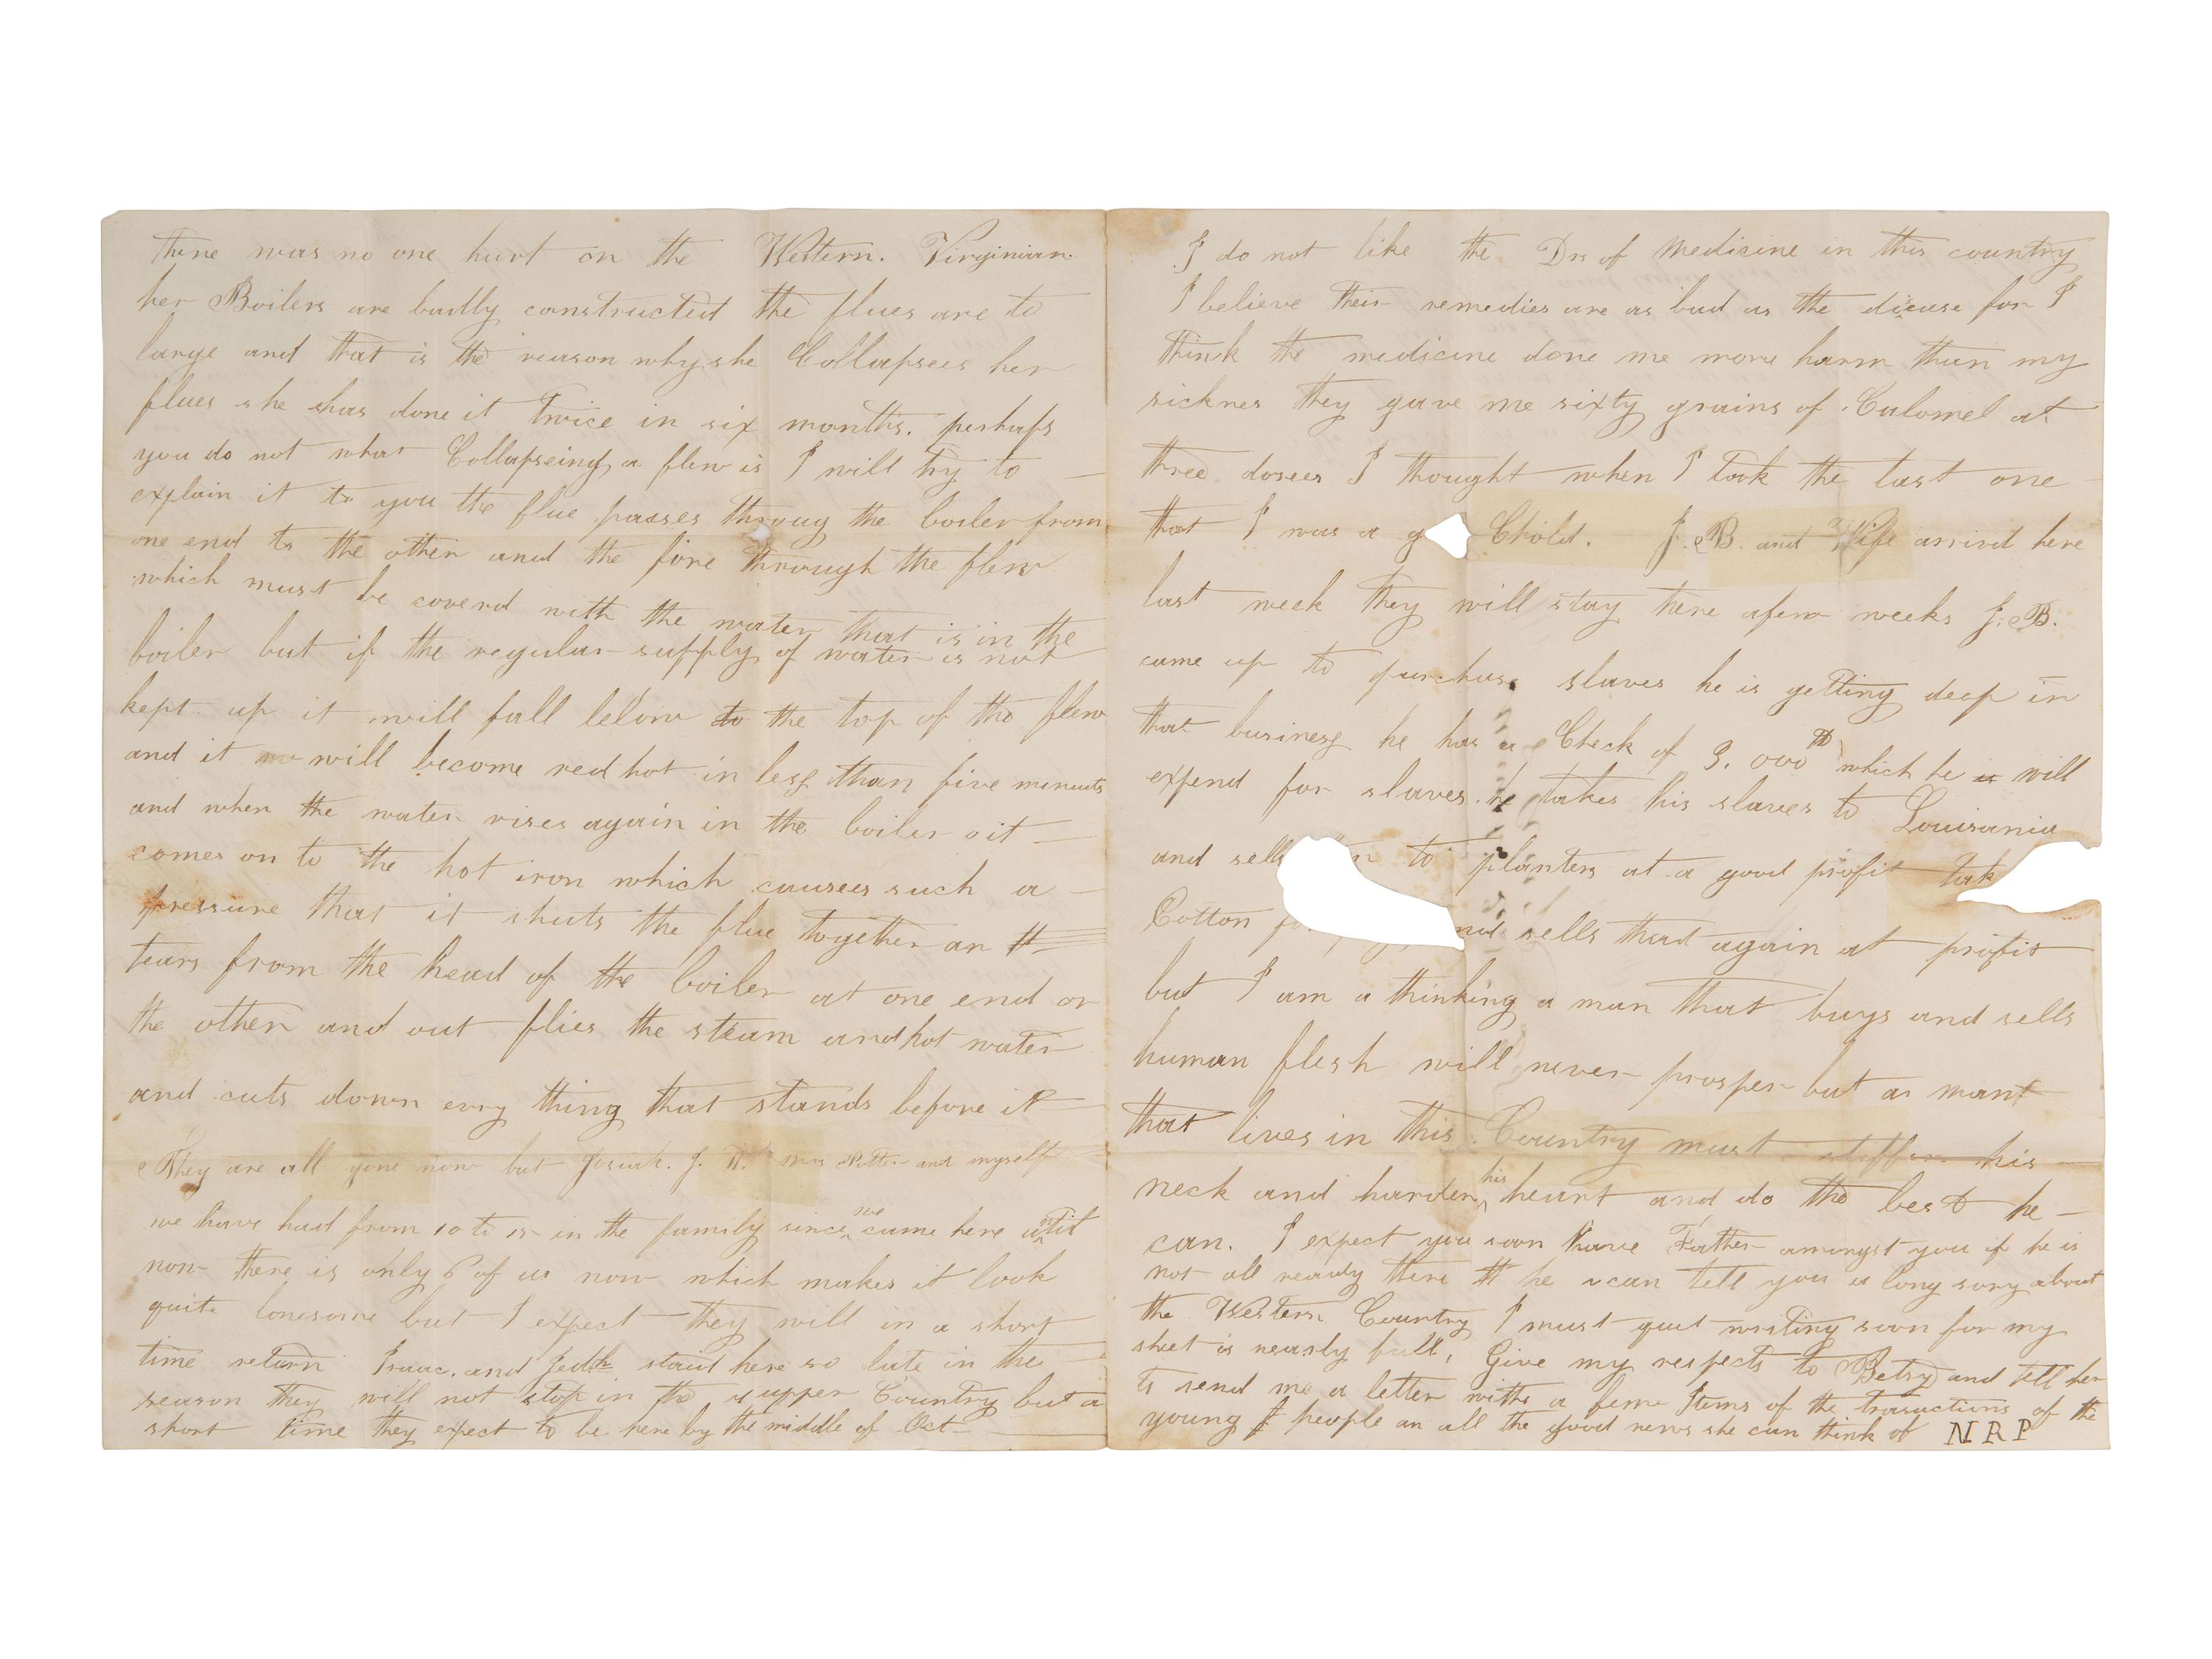 there was no one hurt on the Western. Virginian.
her Boilers are badly constructed the flues are to
large and that is the reason why she Collapsees her
flues she has done it twice in six months. perhaps
you do not what Collapseing a flew is I will try to
explain it to you the flue passes throug the boiler from
one end to the other and the fire through the flew
which must be coverd with the water that is in the
boiler but if the regular supply of water is not
kept up it will fall below to the top of the flew
and it will become red hot in less than five minuts
and when the water rises again in the boiler it
comes on to the hot iron which causees such a
pressure that it shuts the flue together an
tears from the head of the boiler at one end or
the other and out flies the steam and hot water
and cuts down evry thing that stands before it
They are all gone now but Josiah. J. mrs Potter and myself
we have had from 10 to 15 in the family since we came here until
now there is only 6 of us now which makes it look
quite lonesome but I expect they will in a short
time return Isaac. and Jedh staid here so late in the
season they will not stop in the upper Country but a
short time they expect to be here by the middle of Oct
I do not like the Drs of Medicine in this country
I believe their remedies are as bad as the diseuse for I
think the medicine done me more harm than my
sicknes they gave me sixty grains of Calomel at
three dosees I thought when I took the last one
that I was a g Child. J. B. and Wife arrivd here
last week they will stay here afew weeks J. B.
came up to purchase slaves he is getting deep in
that business he has a Check of 3.000 which he is will
expend for slaves he takes his slaves to Louisania
and sells to planters at a good profit tak
Cotton and sells that again at profit
but I am a thinking a man that buys and sells
human flesh will never prosper but a mant
that lives in this Country must stiffen his
neck and harden his heart and do the best he
can. I expect you soon have Father amongst you if he is
not all ready there he can tell you a long sory about
the Western Country I must quit writing soon for my
sheet is nearly full, Give my respects to Betsy and tell her
to send me a letter with a fiew Items of the trasactions of the
young people an all the good news she can think of N R P